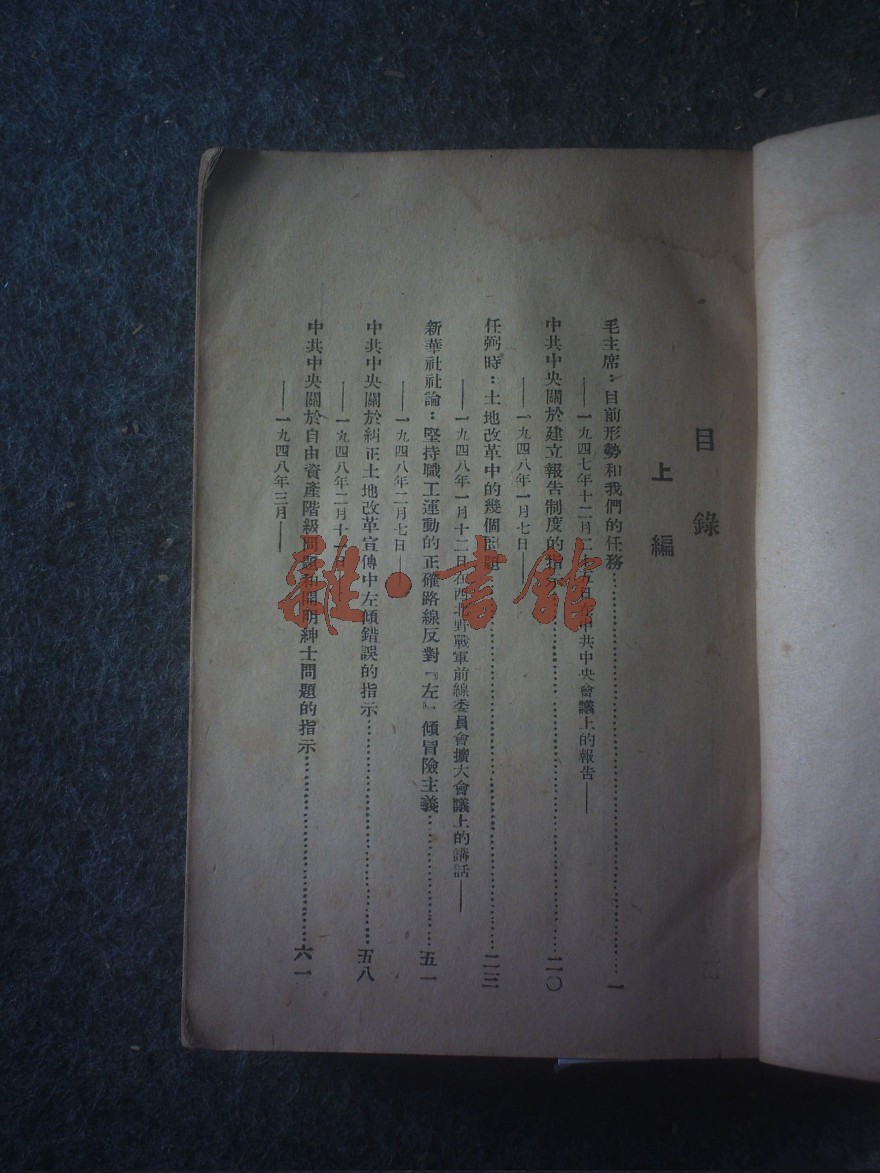 目錄
上編
毛主席：目前形勢和我們的任務……一
——一九四七年十二月二十五日 中共中央會議上的報告——
中共中央關於建立報告制度的指示……二〇
——一九四八年一月七日——
任弼時：土地改革中的幾個問題……二三
——一九四八年一月十二日在西北野戰軍前線委員會擴大會議上的講話——
新華社社論：堅持職工運動的正確路線反對『左』傾冒險主義……五一
——一九四八年二月七日——
中共中央關於糾正土地改革宣傳中左傾錯誤的指示……五八
——一九四八年二月十一日
中共中央關於自由資產階級問題和開明紳士問題的指示……六一
——一九四八年三月——
雜·書館